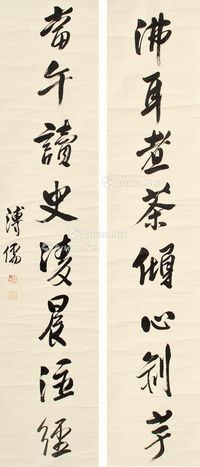 沸耳煮茶傾心剝芋
當午讀史凌晨注經
溥儒